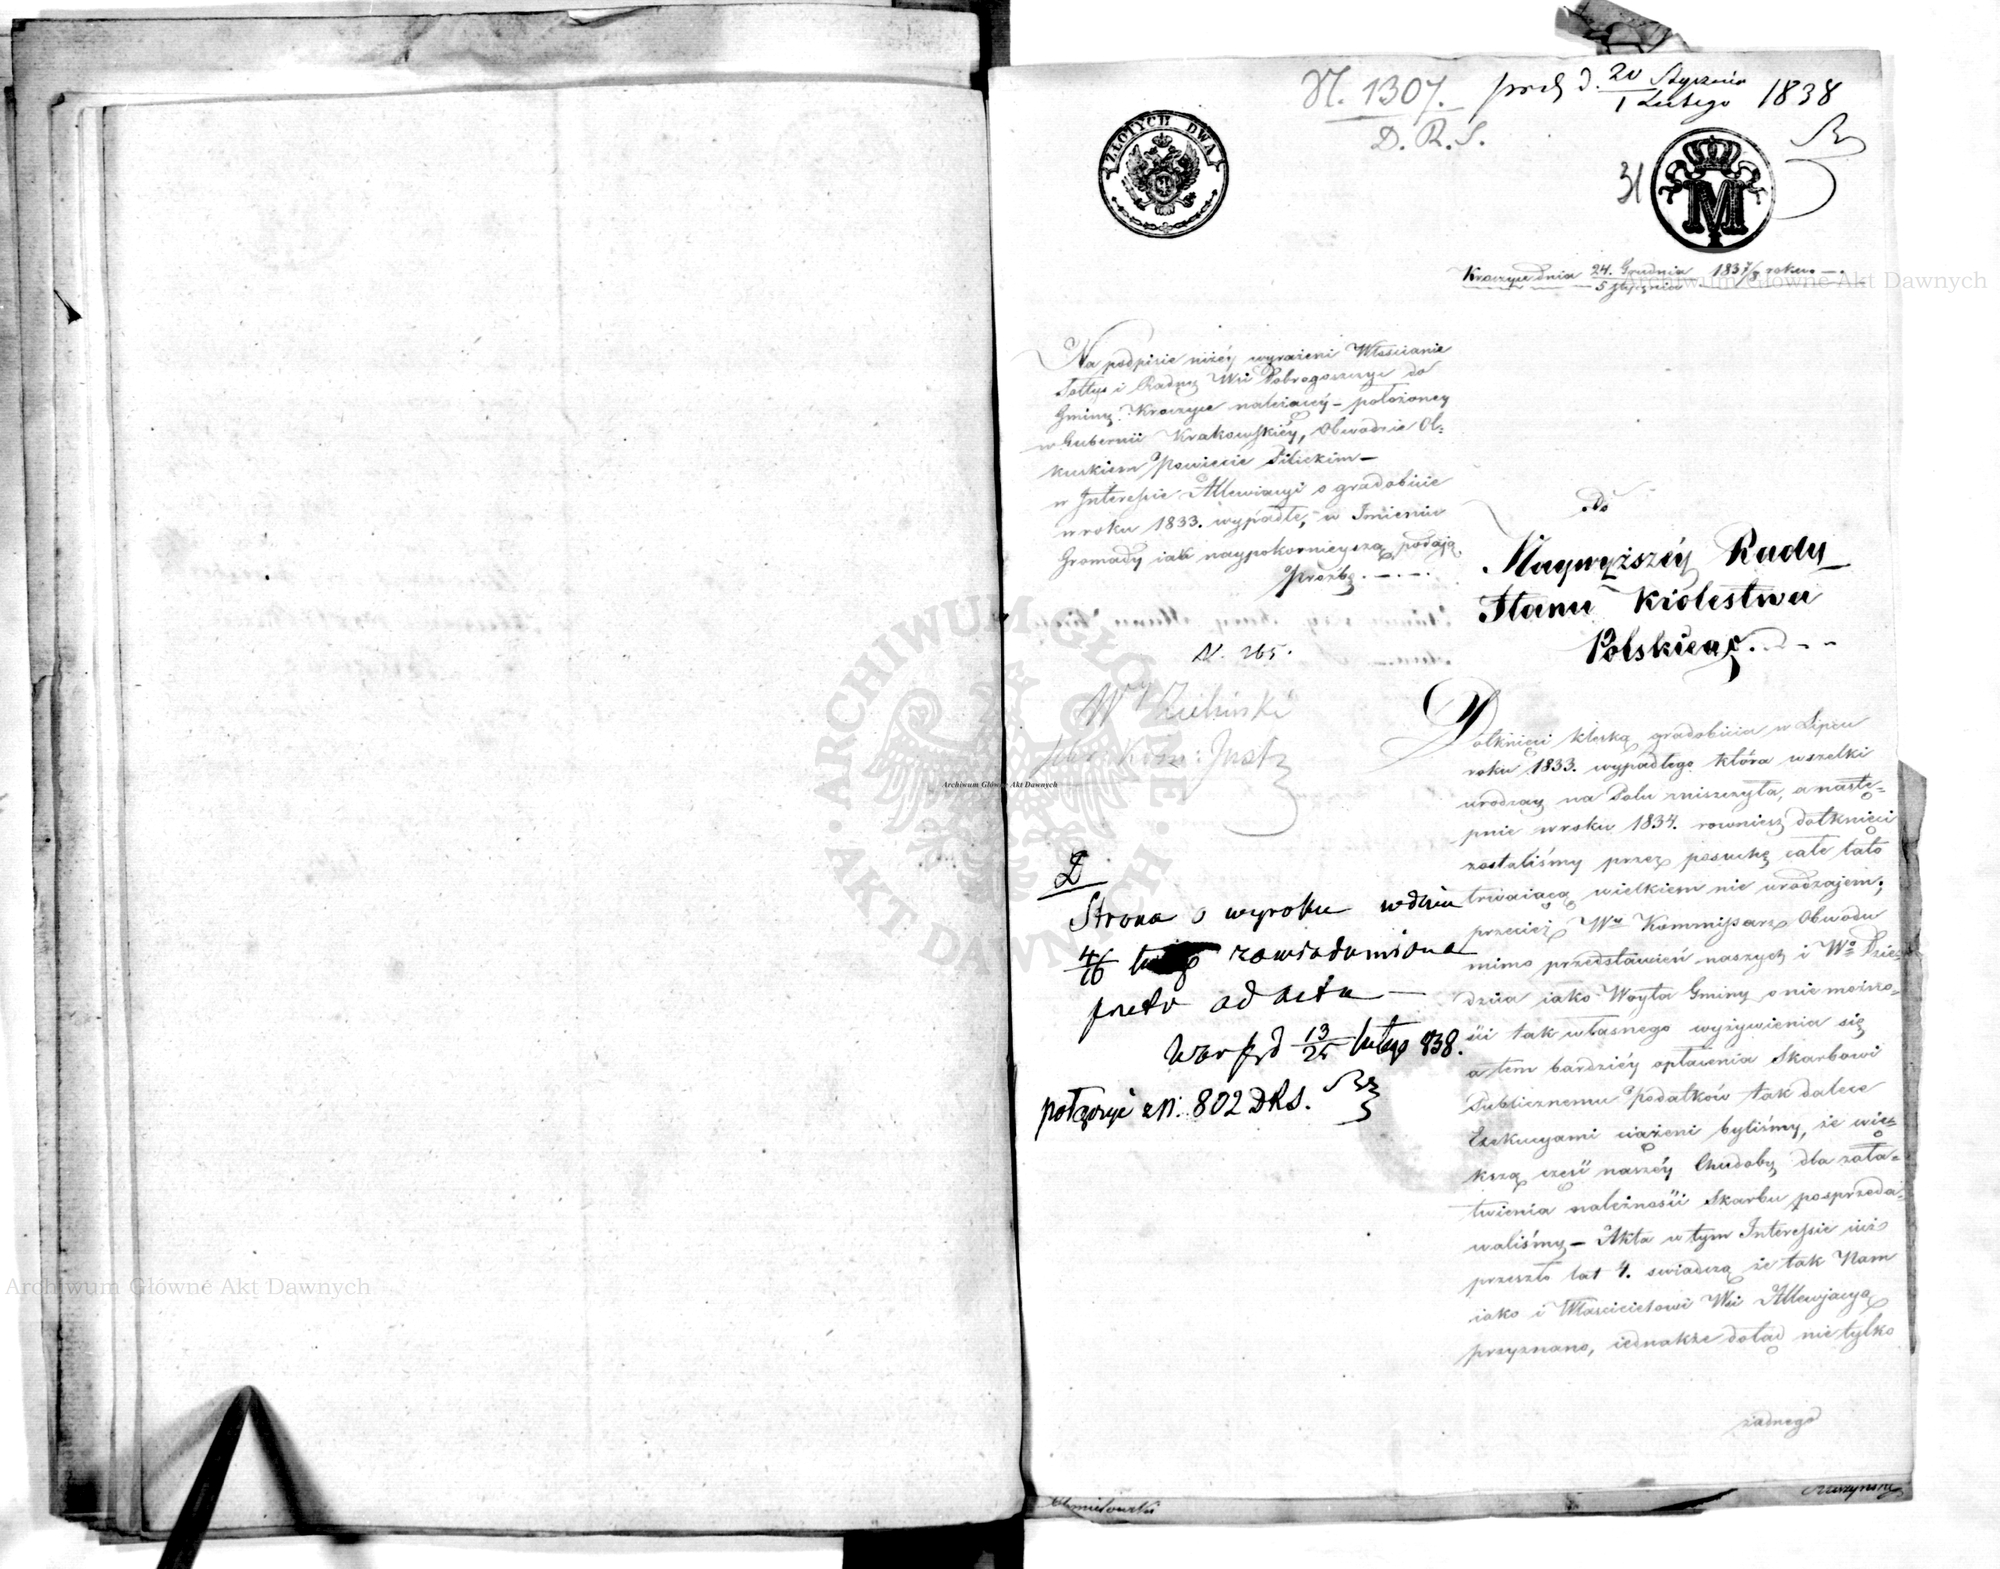 N. 1307. prd d. 20 Stycznia / 1 Lutego 1838
D. R. S.
ZŁOTYCH DWA
31
M
Kroczyce dnia 24. Grudnia / 5 Stycznia 1837/8 roku.
Na podpisie niżéy wyrażeni Włościanie
Sołtys i Radny Wsi Dobrogoszczyc do
Gminy Kroczyce należącéy – położoney
w Gubernii Krakowskiéy, Obwodzie Ol=
kuskiem Powiecie Pilickim –
w Interessie Allewiacyi o gradobicie
w roku 1833. wypadłe, w Imieniu
Gromady iak naypokornieyszą podają
Proźbę.
N. 265.
Wy Zieliński
Kom: Just
Do
Naywyższéy Rady
Stanu Królestwa
Polskiego.
Dotknięci klęską gradobicia w Lipcu
roku 1833. wypadłego która wszelki
urodzay na Polu zniszczyła, a nastę=
pnie w roku 1834. rownież dotknięci
zostaliśmy przez posuchę całe lato
trwaiącą wielkiem nie urodzajem;
przecież Wy Kommissarz Obwodu
mimo przedstawień naszych i Wo Dzie=
dzica iako Woyta Gminy o nie możno=
ści tak własnego wyżywienia się
a tem bardziéy opłacenia Skarbowi
Publicznemu Podatków tak dalece
Exekucyami ciążeni byliśmy, że wię=
kszą część naszéy Chudoby dla zała=
twienia należności Skarbu posprzeda=
waliśmy – Akta w tym Interessie iuż
przeszło lat 4. świadczą że tak Nam
iako i Właścicielowi Wsi Allewjacyą
przyznano, iednakże dotąd nie tylko
żadnego
D
Strona o wyroku w dniu
4/16 lutego zawiadomiona
przeto ad acta –
War prd 13/25 lutego 838.
połączyć z N. 802 DRS.
Chmielowski
Archiwum Główne Akt Dawnych
Archiwum Główne Akt Dawnych
Archiwum Główne Akt Dawnych
ARCHIWUM GŁÓWNE · AKT DAWNYCH ·